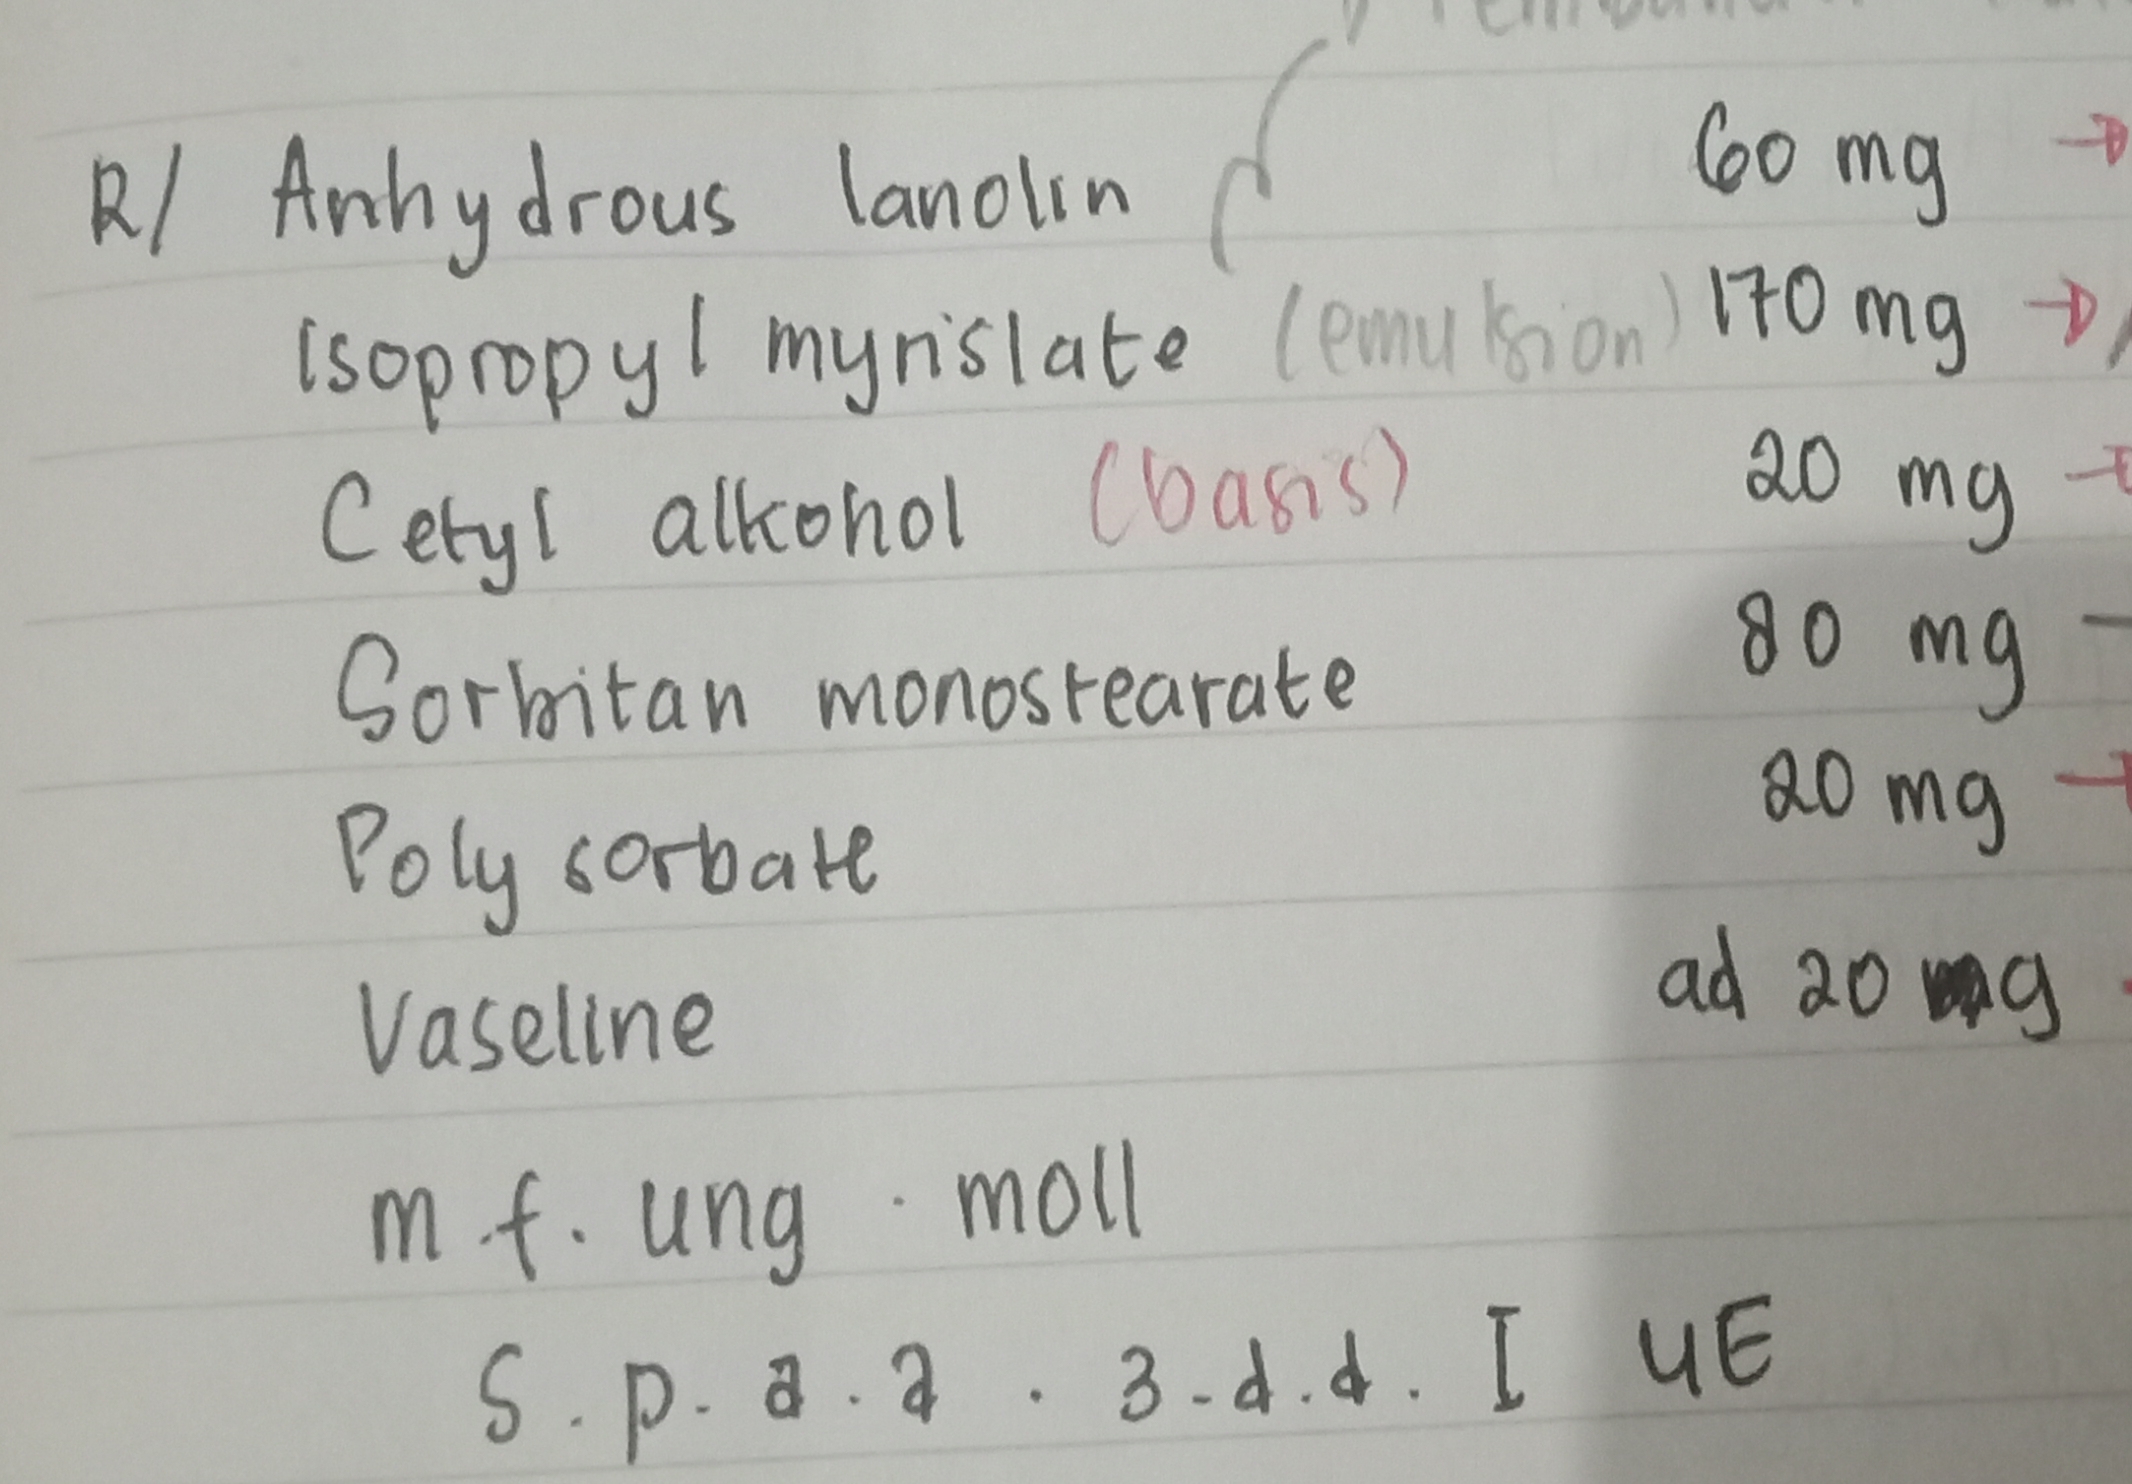 R/ Anhydrous lanolin 60 mg →
Isopropyl myrislate (emulsion) 170 mg →
Cetyl alkohol (basis) 20 mg
Sorbitan monostearate 80 mg
Poly sorbate 20 mg
Vaseline ad 20 g
m.f. ung. moll
S.p.a.a. 3.d.d. I UE